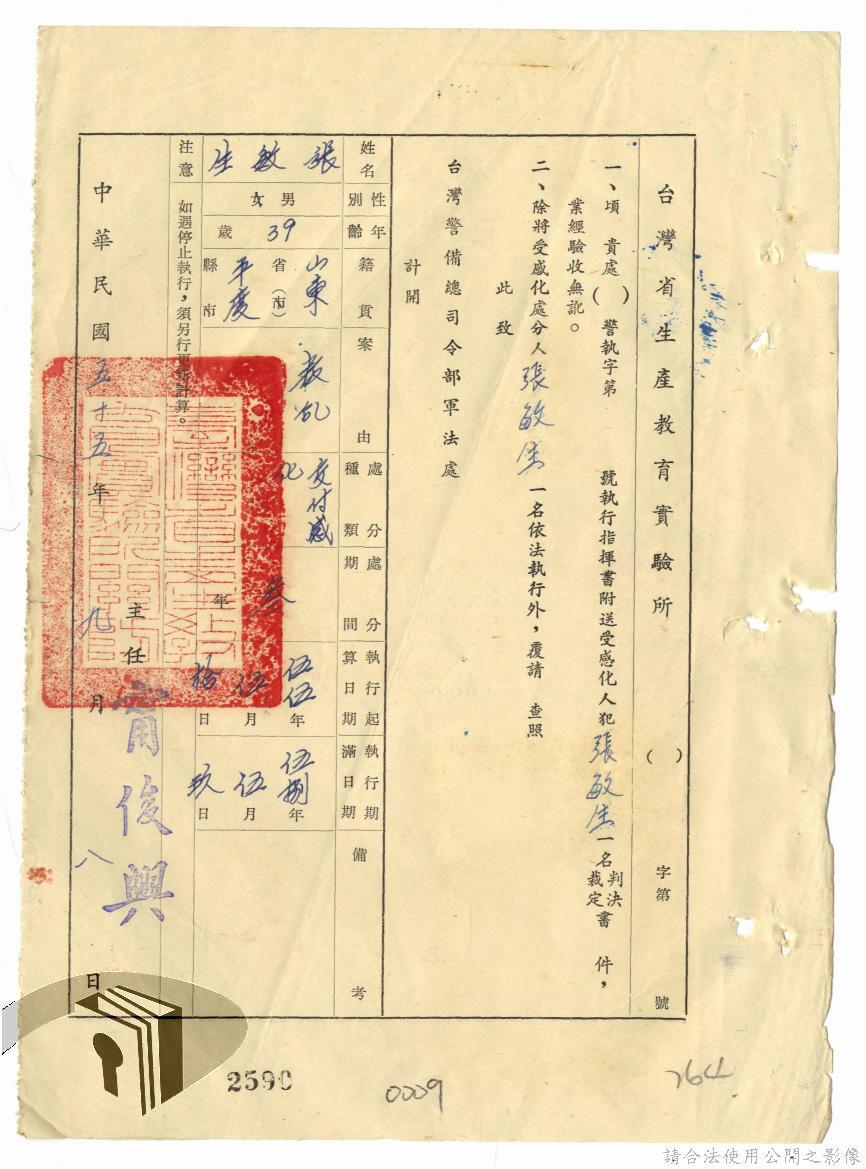 台灣省生產教育實驗所（　）字第　號
一、頃　貴處（　）警執字第　號執行指揮書附送受感化人犯張敏生一名判決裁定書　件，
業經驗收無訛。
二、除將受感化處分人張敏生一名依法執行外，覆請　查照
此致
台灣警備總司令部軍法處
計開
姓名　性別　年齡　籍貫　案由　處分種類　處分期間　執行起算日期　執行期滿日期　備考
張敏生　男女　39歲　山東省（市）平度縣市　叛乱　交付感化　叁年　伍伍年伍月拾日　伍捌年伍月玖日
注意　如遇停止執行，須另行更新計算。
主任　甯俊興
中華民國五十五年九月八日
2590
0009
264
請合法使用公開之影像